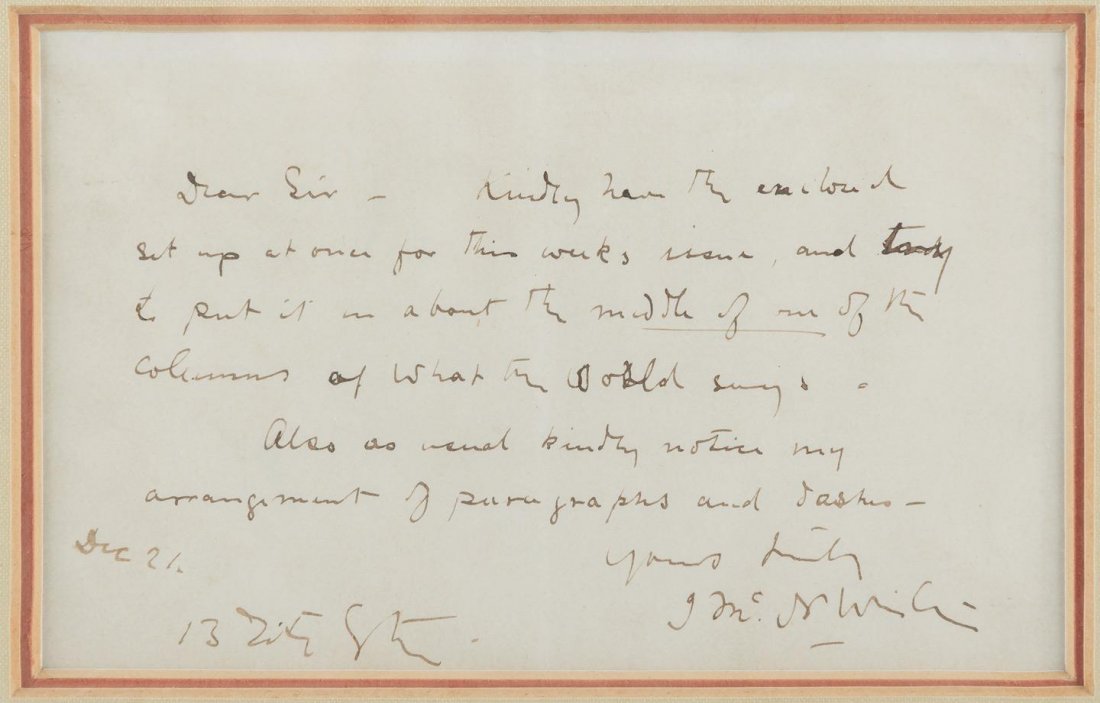 Dear Sir – Kindly have the enclosed
set up at once for this weeks issue, and try
to put it in about the middle of one of the
columns of What the World says –
Also as usual kindly notice my
arrangement of paragraphs and dashes –
Yours truly
Dec 21.
J McN Whistler
13 Tite Street –